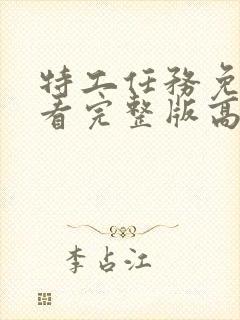 特工任务免
看完整版高
李占江